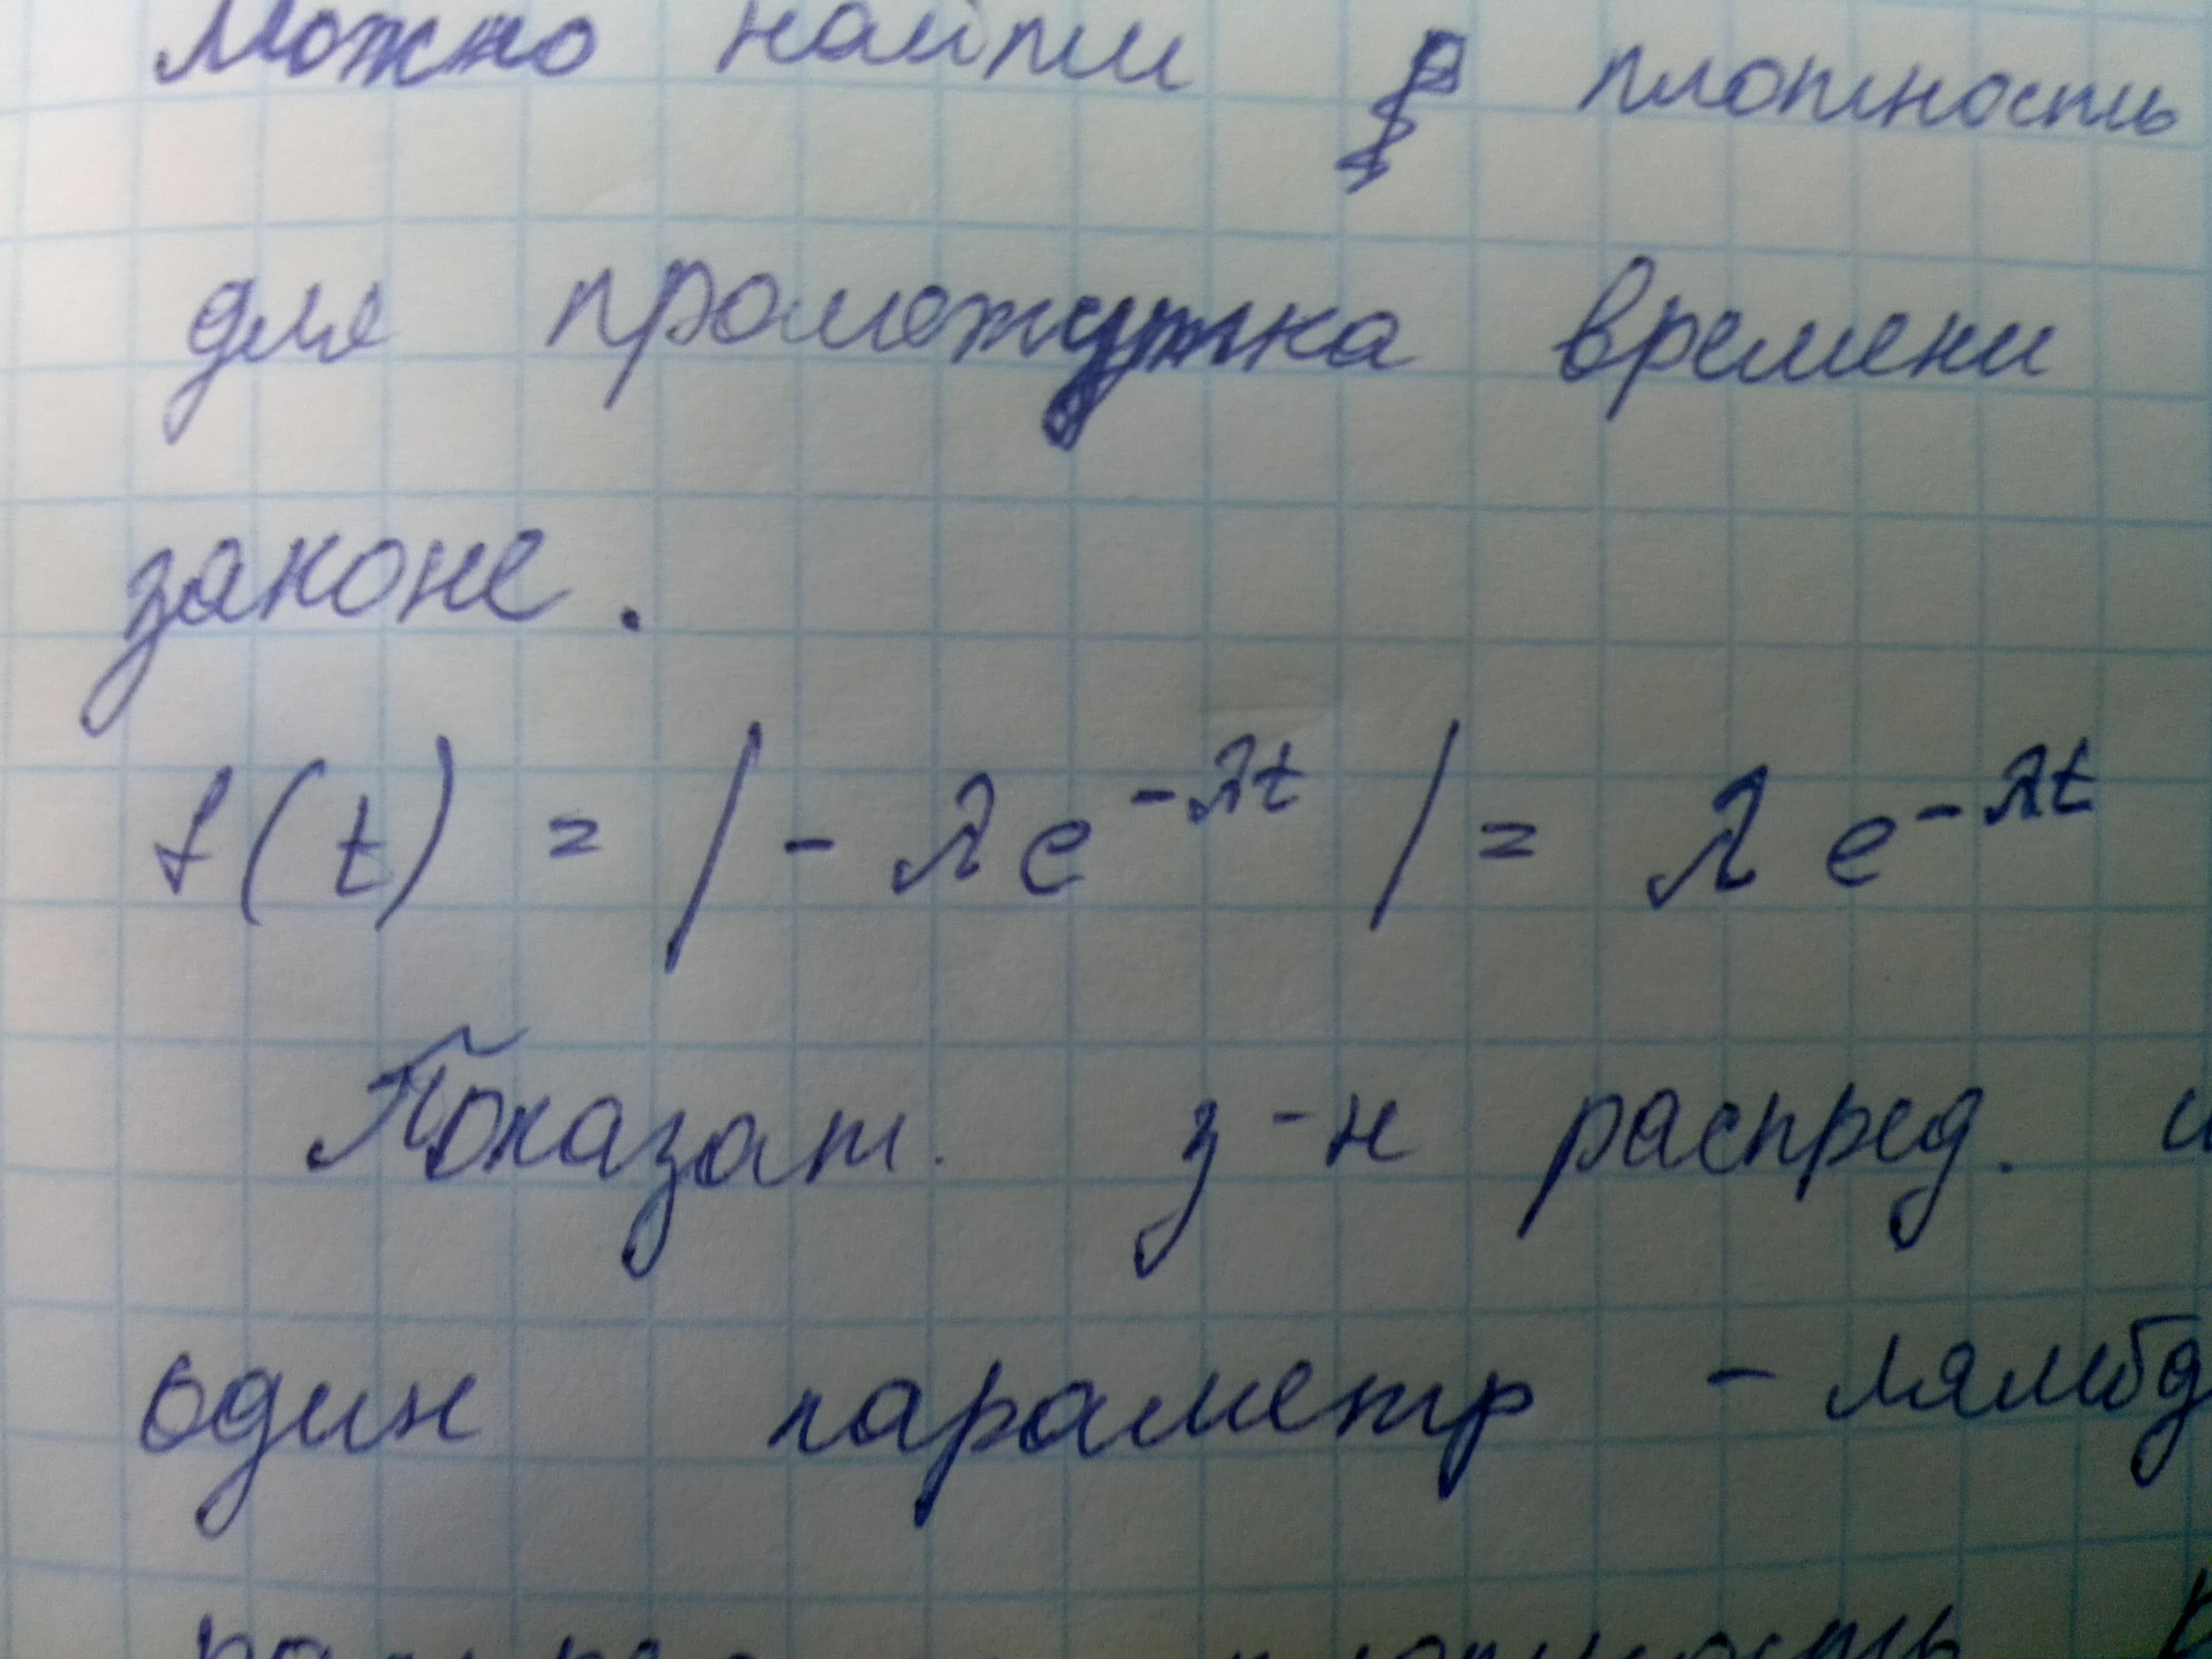 Можно найти плотность
для промежутка времени
законе.
f(t) = |-λe^{-λt}| = λe^{-λt}
Показат. з-н распред. и
один параметр - лямбд
плотность